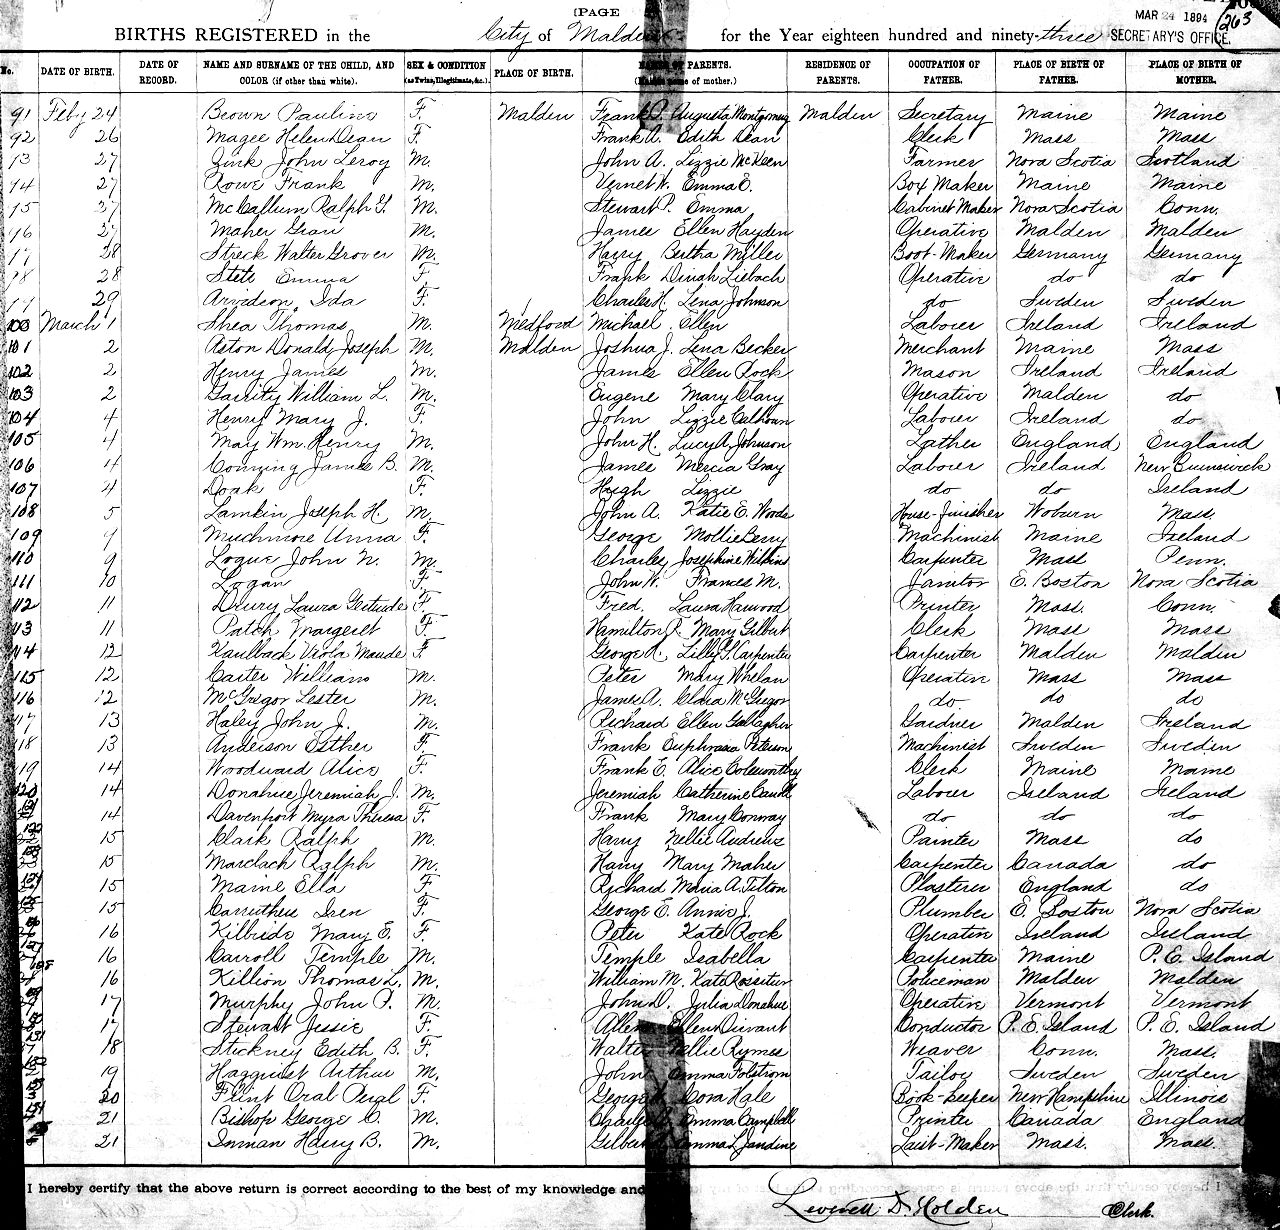 [PAGE
MAR 24 1894
263
BIRTHS REGISTERED in the City of Malden for the Year eighteen hundred and ninety-three SECRETARY'S OFFICE.
No. DATE OF BIRTH. DATE OF RECORD. NAME AND SURNAME OF THE CHILD, AND COLOR (if other than white). SEX & CONDITION (as Twins, Illegitimate, &c.) PLACE OF BIRTH. NAMES OF PARENTS. (Maiden name of mother.) RESIDENCE OF PARENTS. OCCUPATION OF FATHER. PLACE OF BIRTH OF FATHER. PLACE OF BIRTH OF MOTHER.
91 Feby 24 Brown Pauline F. Malden Frank P. Augusta Montgomery Malden Secretary Maine Maine
92 26 Magee Helen Dean F. Frank A. Edith Dean Clerk Mass Mass
13 27 Zink John Leroy M. John A. Lizzie McKeen Farmer Nova Scotia Scotland
14 27 Rowe Frank M. Vernet W. Emma E. Box Maker Maine Maine
15 27 McCallum Ralph G. M. Stewart P. Emma Cabinet Maker Nova Scotia Conn.
16 27 Maher M. James Ellen Hayden Operative Malden Malden
17 28 Streck Walter Grover M. Harry Bertha Miller Boot-Maker Germany Germany
18 28 Stete Emma F. Frank Dinah Liebach Operative do do
19 29 Arvedson, Ida F. Charles H. Lena Johnson do Sweden Sweden
100 March 1 Shea Thomas M. Medford Michael Ellen Laborer Ireland Ireland
101 2 Aston Donald Joseph M. Malden Joshua J. Lena Becker Merchant Maine Mass
102 2 Henry James M. James Ellen Rock Mason Ireland Ireland
103 2 Garrity William L. M. Eugene Mary Clary Operative Malden do
104 4 Henry Mary J. F. John Lizzie Calhoun Laborer Ireland do
105 4 May Wm. Henry M. John H. Lucy A. Johnson Lather England England
106 4 Conning James B. M. James Mercia Gray Laborer Ireland New Brunswick
107 4 Doak F. Hugh Lizzie do do Ireland
108 5 Lamkin Joseph H. M. John A. Katie E. Woods House-finisher Woburn Mass.
109 9 Muchmore Anna F. George Mollie Berry Machinist Maine Ireland
110 9 Logue John N. M. Charles Josephine Wilkins Carpenter Mass Penn.
111 10 Logan F. John W. Frances M. Janitor E. Boston Nova Scotia
112 11 Drury Laura Gertrude F. Fred. Laura Harwood Printer Mass. Conn.
113 11 Patch Margeret F. Hamilton R. Mary Gilbert Clerk Mass Mass
114 12 Kaulback Viola Maude F. George A. Lilly G. Carpenter Carpenter Malden Malden
115 12 Carter William M. Peter Mary Whelan Operative Mass Mass
116 12 McGregor Lester M. James A. Clara McGregor do do do
117 13 Haley John J. M. Richard Ellen Gallagher Gardner Malden Ireland
118 13 Anderson Esther F. Frank Euphrasia Peterson Machinist Sweden Sweden
119 14 Woodward Alice F. Frank E. Alice Colesworthy Clerk Maine Maine
120 14 Donahue Jeremiah J. M. Jeremiah Catherine Carroll Laborer Ireland Ireland
14 Davenport Myra Theresa F. Frank Mary Conway do do do
15 Clark Ralph M. Harry Nellie Andrews Painter Mass do
15 Marclack Ralph M. Harry Mary Maher Carpenter Canada do
15 Maine Ella F. Richard Maria A. Tilton Plasterer England do
15 Carruthers Iren F. George E. Annie J. Plumber E. Boston Nova Scotia
16 Kilbride Mary E. F. Peter Kate Rock Operative Ireland Ireland
16 Carroll Temple M. Temple Isabella Carpenter Maine P. E. Island
16 Killion Thomas L. M. William M. Kate Rossiter Policeman Malden Malden
17 Murphy John P. M. John D. Julia Donahue Operative Vermont Vermont
17 Stewart Jessie F. Allen Ellen Conductor P. E. Island P. E. Island
18 Stickney Edith B. F. Walter Nellie Rymes Weaver Conn. Mass.
19 Hagquist Arthur M. John Emma Folstrom Tailor Sweden Sweden
20 Flint Oral Pearl F. George Cora Hale Book-keeper New Hampshire Illinois
21 Bishop George C. M. Charles Emma Campbell Printer Canada England
21 Inman Harry B. M. Gilbert Emma L. Jandine Last-Maker Mass. Mass.
I hereby certify that the above return is correct according to the best of my knowledge and
Leverett D. Holden Clerk.